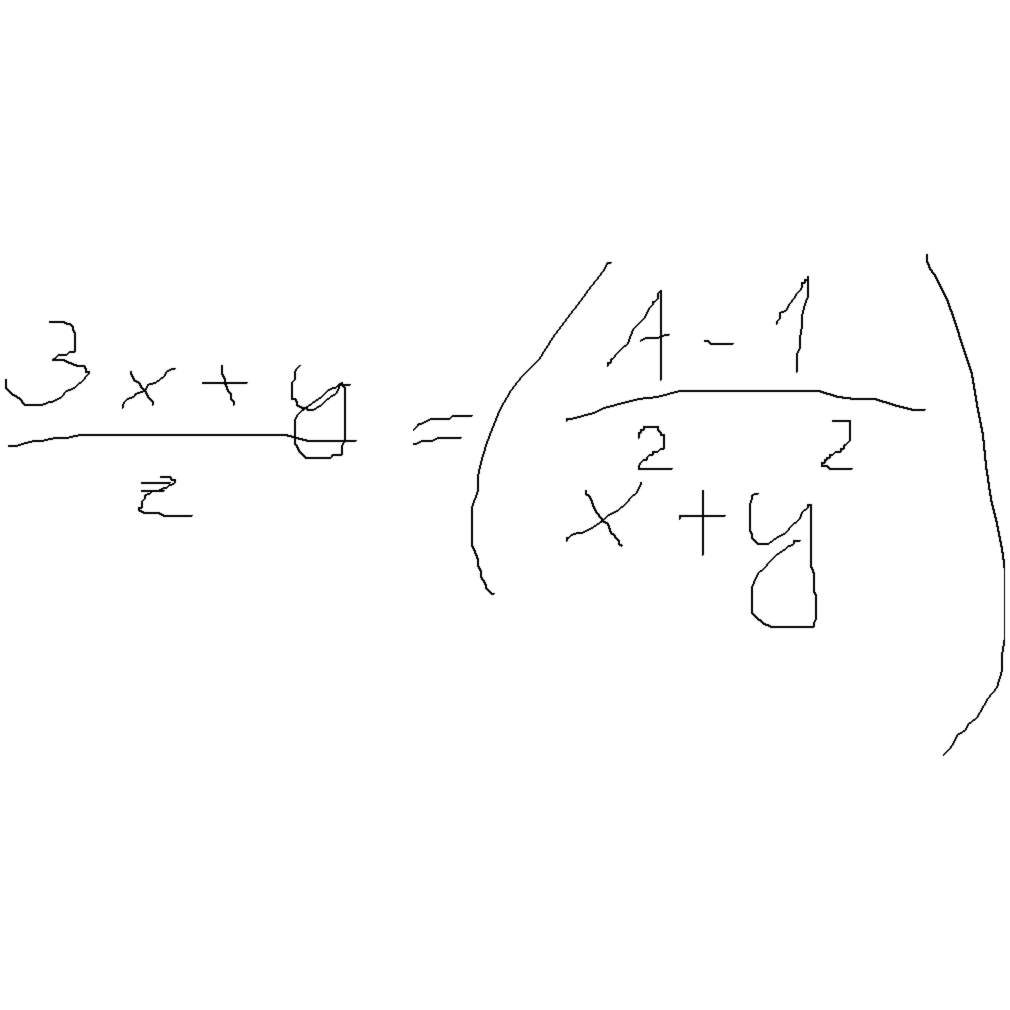 \frac{3x+y}{z} = \left( \frac{4-1}{x^2+y^2} \right)